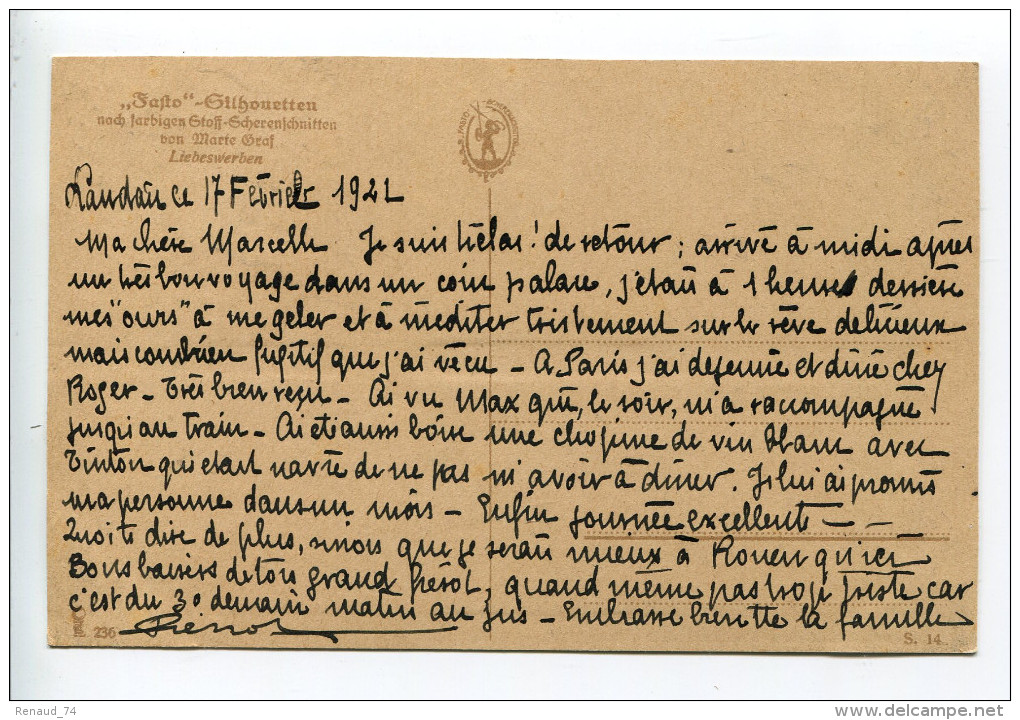 „Fasto“-Silhouetten
nach farbigen Stoff-Scherenschnitten
von Marte Graf
Liebeswerben
Landau ce 17 Février 1921
Ma chère Marcelle Je suis hélas! de retour; arrivé à midi après
un très bon voyage dans un coin palace, j'étais à 1 heure derrière
mes "ours" à me geler et à méditer tristement sur le rêve délicieux
mais combien fugitif que j'ai vécu – A Paris j'ai déjeuné et dîné chez
Roger – Très bien reçu – Ai vu Max qui, le soir, m'a raccompagné
jusqu'au train – Ai été aussi boire une chopine de vin blanc avec
Tinton qui était navré de ne pas m'avoir à dîner. Je lui ai promis
ma personne dans un mois – Enfin journée excellente – –
Quoi te dire de plus, sinon que je serais mieux à Rouen qu'ici
Bons baisers de ton grand frérot, quand même pas trop triste car
c'est du 30 demain matin au jus – Embrasse bien tte la famille
Frérot
236
S. 14
Renaud_74
www.delcampe.net